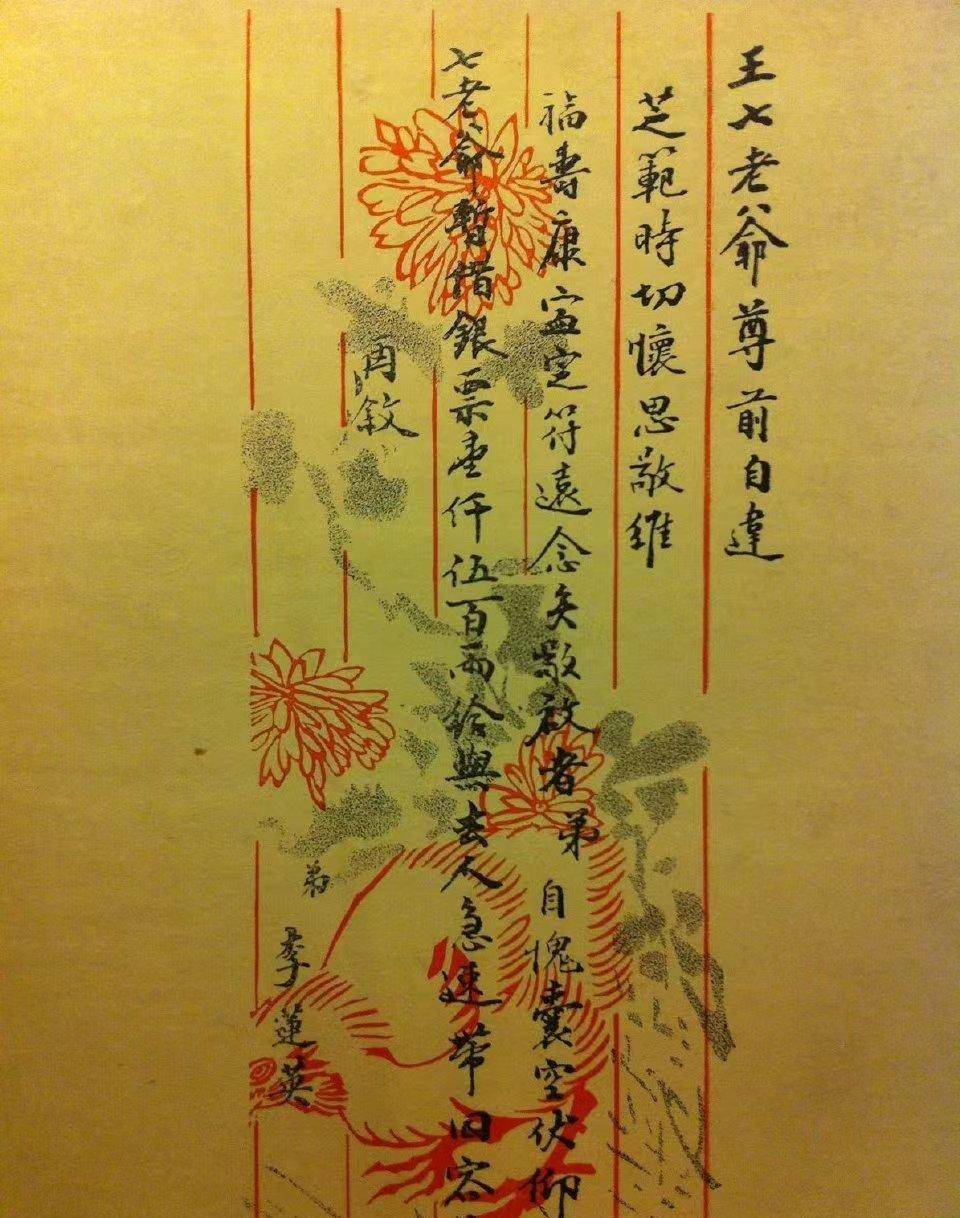 王七老爺尊前自違
芝範時切懷思敬維
福壽康寧定符遠念矣敬啟者弟自愧囊空伏仰
七老爺暫借銀票壹仟伍百兩給與去人急速帶回容
再敘
弟李蓮英